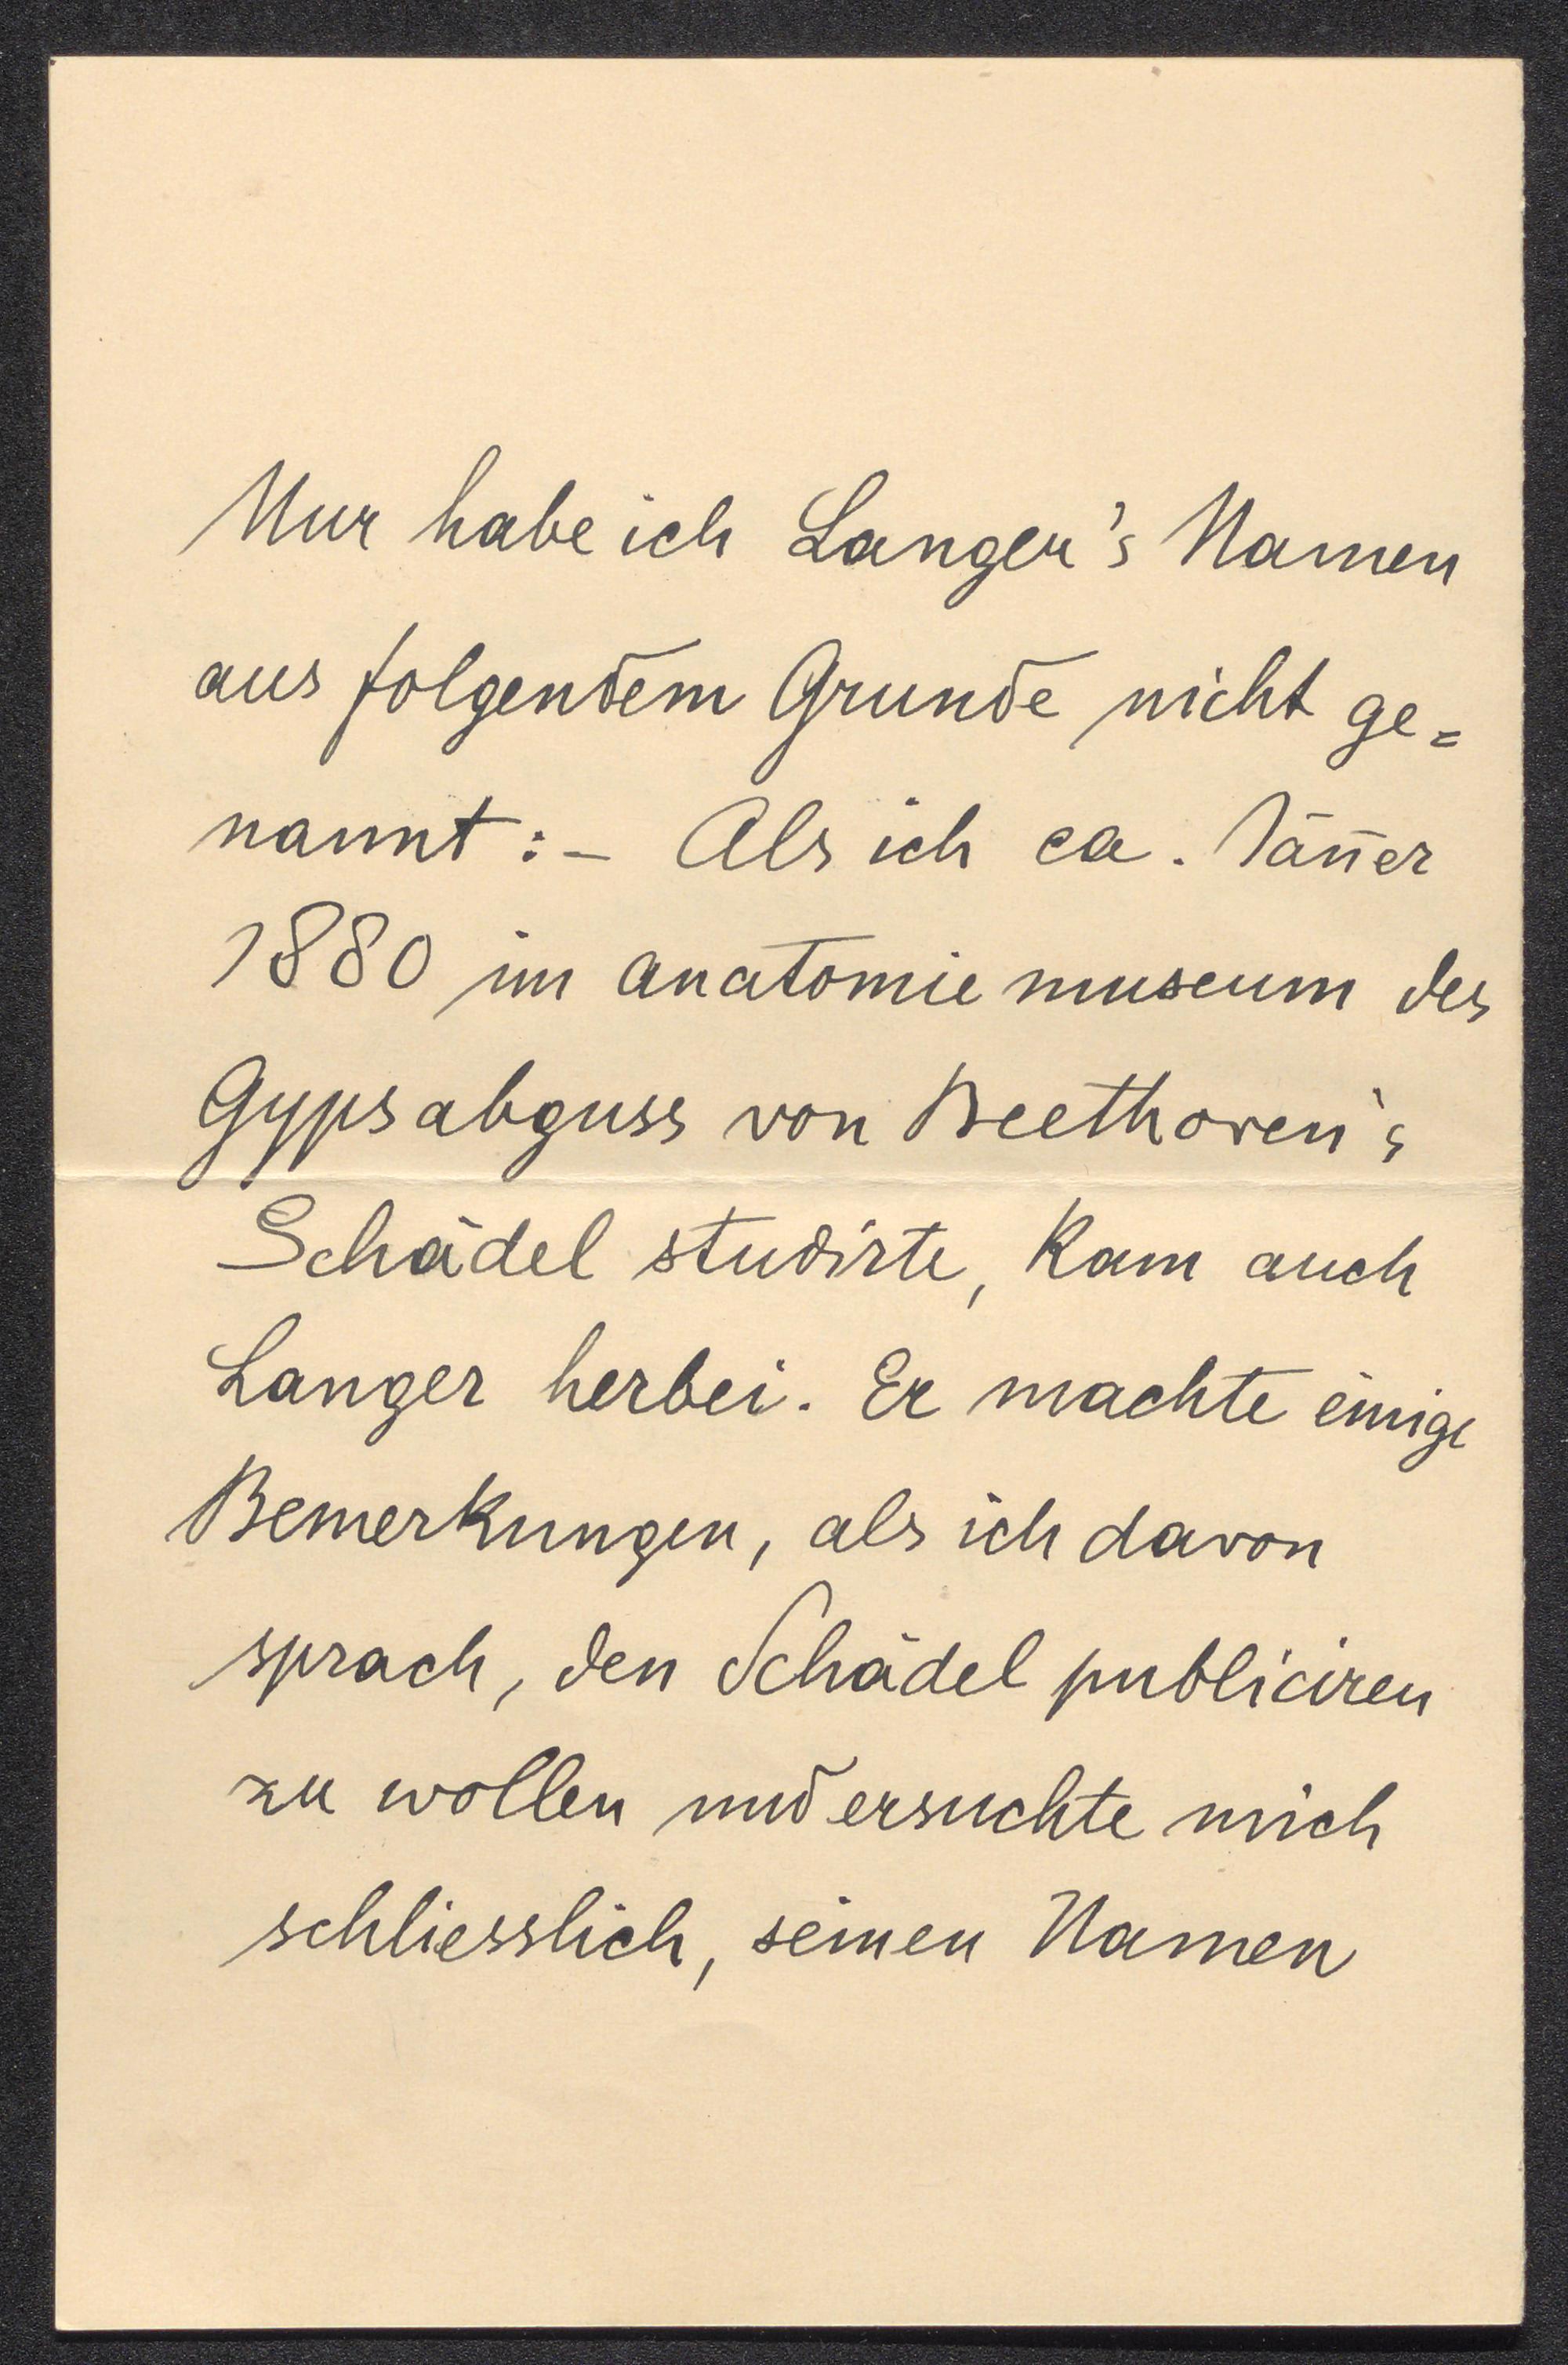 Nur habe ich Langer's Namen
aus folgendem Grunde nicht ge=
nannt: – Als ich ca. Jän̄er
1880 im anatomie museum des
Gypsabguss von Beethoven's
Schädel studirte, kam auch
Langer herbei. Er machte einige
Bemerkungen, als ich davon
sprach, den Schädel publiciren
zu wollen und ersuchte mich
schliesslich, seinen Namen